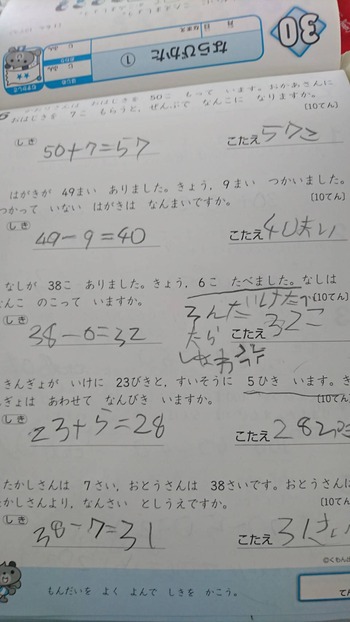 30
ならびかた ①
50こ もって います。おかあさんに
おはじきを 7こ もらうと，ぜんぶで なんこに なりますか。
〔10てん〕
しき
50+7=57
こたえ 57こ
はがきが 49まい ありました。きょう，9まい つかいました。
つかって いない はがきは なんまいですか。
〔10てん〕
しき
49-9=40
こたえ 40まい
なしが 38こ ありました。きょう，6こ たべました。なしは
なんこ のこって いますか。
〔10てん〕
しき
38-6=32
こたえ 32こ
きんぎょが いけに 23びきと，すいそうに 5ひき います。き
んぎょは あわせて なんびき いますか。
〔10てん〕
しき
23+5=28
こたえ 28
たかしさんは 7さい，おとうさんは 38さいです。おとうさんは
たかしさんより，なんさい としうえですか。
〔10てん〕
しき
38-7=31
こたえ 31さい
©くもん
もんだいを よく よんで しきを かこう。
てん